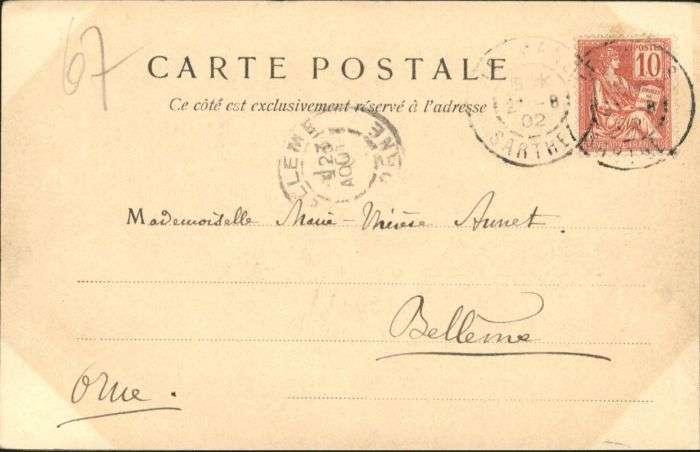 67
CARTE POSTALE
Ce côté est exclusivement réservé à l'adresse
POSTES
10
02
SARTHE
BELLEME
ORNE
23
AOUT
Mademoiselle Marie-Thérèse Aunet
Bellême
Orne.